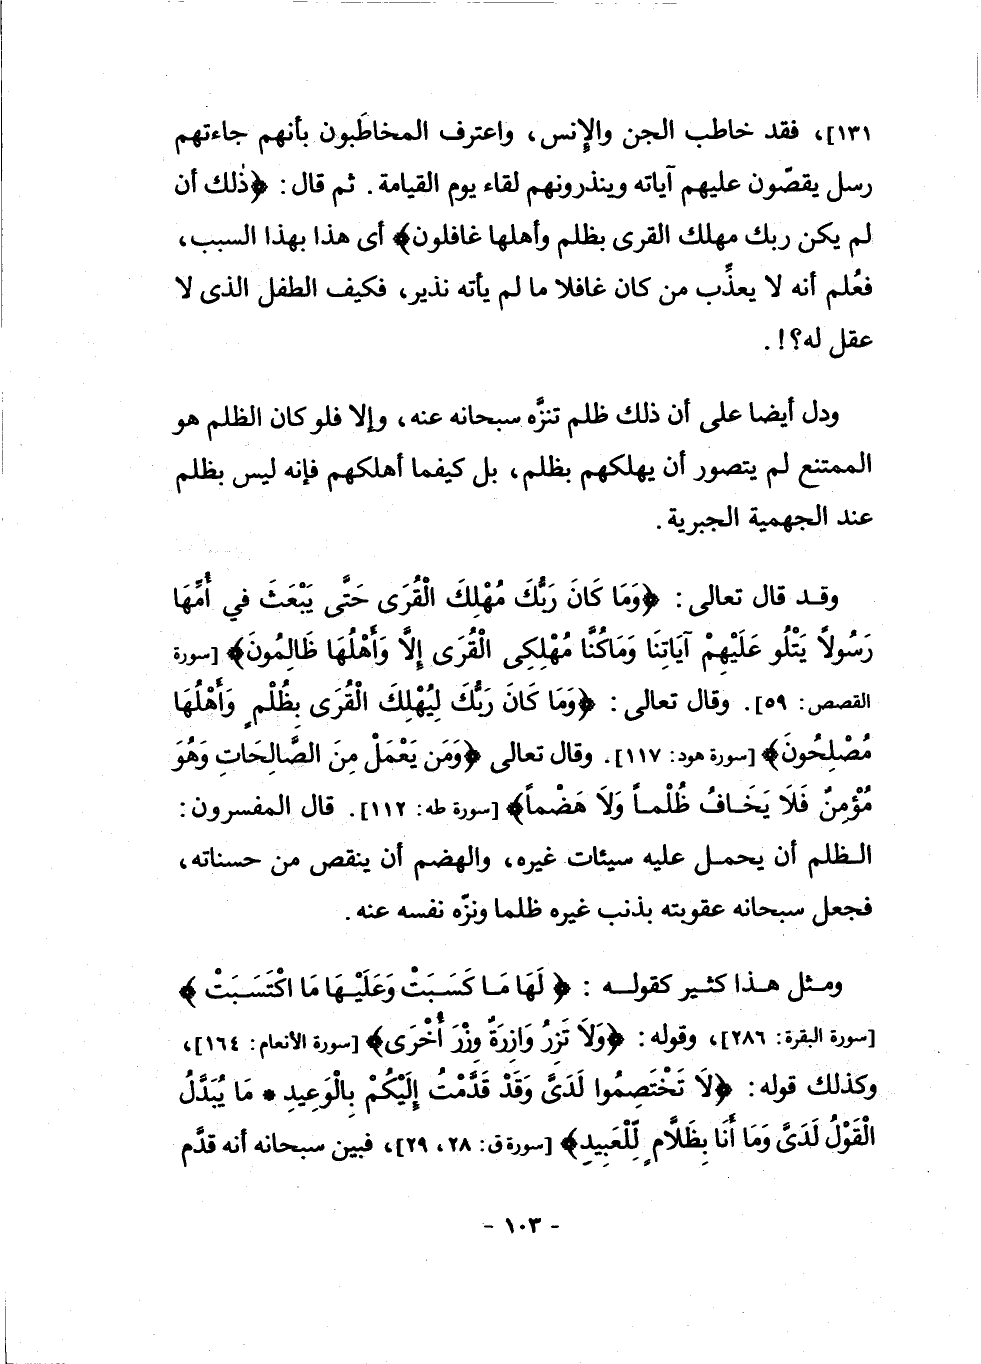 ١٣١]، فقد خاطب الجن والإنس، واعترف المخاطَبون بأنهم جاءتهم
رسل يقصّون عليهم آياته وينذرونهم لقاء يوم القيامة. ثم قال: ﴿ذٰلك أن
لم يكن ربك مهلك القرى بظلم وأهلها غافلون﴾ أى هذا بهذا السبب،
فعُلم أنه لا يعذِّب من كان غافلا ما لم يأته نذير، فكيف الطفل الذى لا
عقل له؟!.
ودل أيضا على أن ذلك ظلم تنزَّه سبحانه عنه، وإلا فلو كان الظلم هو
الممتنع لم يتصور أن يهلكهم بظلم، بل كيفما أهلكهم فإنه ليس بظلم
عند الجهمية الجبرية.
وقد قال تعالى: ﴿وَمَا كَانَ رَبُّكَ مُهْلِكَ الْقُرَى حَتَّى يَبْعَثَ فِي أُمِّهَا
رَسُولاً يَتْلُو عَلَيْهِمْ آيَاتِنَا وَمَاكُنَّا مُهْلِكِى الْقُرَى إِلاَّ وَأَهْلُهَا ظَالِمُونَ﴾ [سورة
القصص: ٥٩]. وقال تعالى: ﴿وَمَا كَانَ رَبُّكَ لِيُهْلِكَ الْقُرَى بِظُلْمٍ وَأَهْلُهَا
مُصْلِحُونَ﴾ [سورة هود: ١١٧]. وقال تعالى ﴿وَمَن يَعْمَلْ مِنَ الصَّالِحَاتِ وَهُوَ
مُؤْمِنٌ فَلَا يَخَافُ ظُلْماً وَلَا هَضْماً﴾ [سورة طه: ١١٢]. قال المفسرون:
الظلم أن يحمل عليه سيئات غيره، والهضم أن ينقص من حسناته،
فجعل سبحانه عقوبته بذنب غيره ظلما ونزّه نفسه عنه.
ومثل هذا كثير كقوله: ﴿لَهَا مَا كَسَبَتْ وَعَلَيْهَا مَا اكْتَسَبَتْ﴾
[سورة البقرة: ٢٨٦]، وقوله: ﴿وَلَا تَزِرُ وَازِرَةٌ وِزْرَ أُخْرَى﴾ [سورة الأنعام: ١٦٤]،
وكذلك قوله: ﴿لَا تَخْتَصِمُوا لَدَىَّ وَقَدْ قَدَّمْتُ إِلَيْكُمْ بِالْوَعِيدِ * مَا يُبَدَّلُ
الْقَوْلُ لَدَىَّ وَمَا أَنَا بِظَلَّامٍ لِّلْعَبِيدِ﴾ [سورة ق: ٢٨، ٢٩]، فبين سبحانه أنه قدَّم
- ١٠٣ -